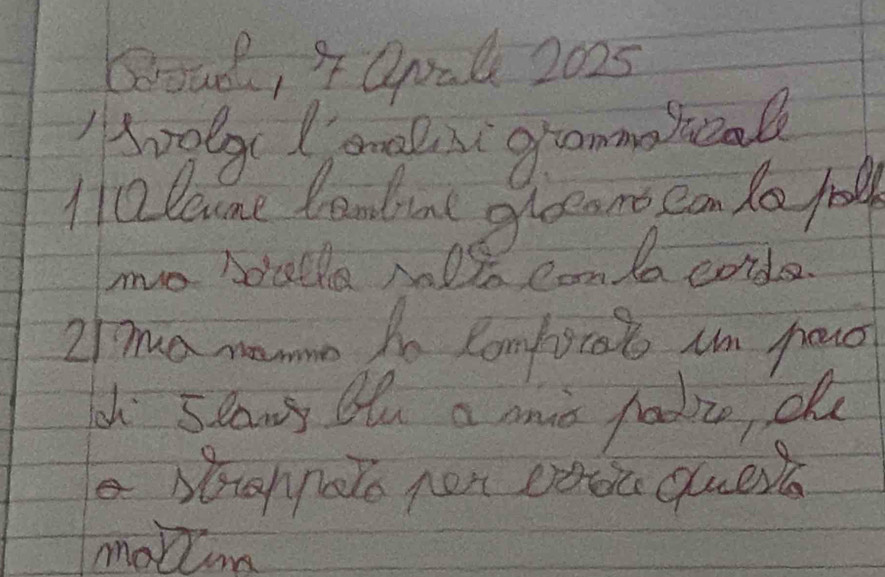 , 7 Aprile 2025
1) Svolgi l'analisi grammaticale
1) Alcune bambine giocano con la palla
mia sorella salta con la corda.
2) mia mamma ha comprato un paio
di slans blu a mio padre, che
a strappato per errore questa
mattina